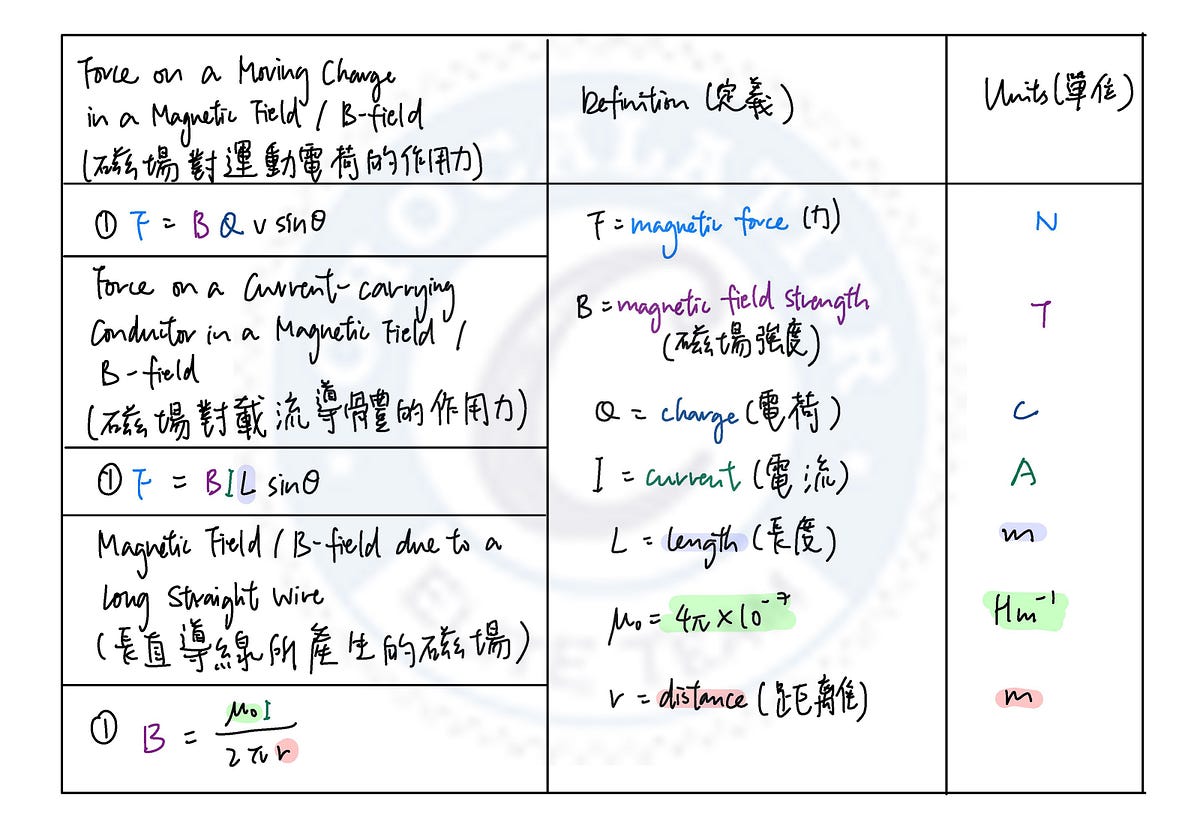 Force on a Moving Charge
in a Magnetic Field / B-field
(磁場對運動電荷的作用力)
Definition (定義)
Units (單位)
① F = BQv sinθ
Force on a Current-carrying
Conductor in a Magnetic Field /
B-field
(磁場對載流導體的作用力)
① F = BIL sinθ
Magnetic Field / B-field due to a
long Straight Wire
(長直導線所產生的磁場)
① B = μ₀I / 2πr
F = magnetic force (力)
N
B = magnetic field strength
(磁場強度)
T
Q = charge (電荷)
C
I = current (電流)
A
L = length (長度)
m
μ₀ = 4π × 10⁻⁷
Hm⁻¹
r = distance (距離)
m